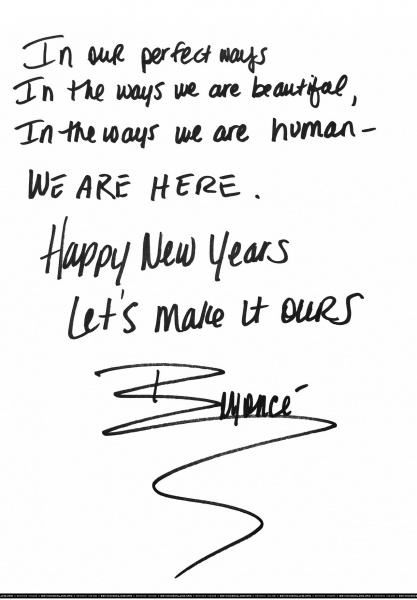 In our perfect ways
In the ways we are beautiful,
In the ways we are human-
WE ARE HERE.
Happy New Years
Let's make it OURS
Beyoncé